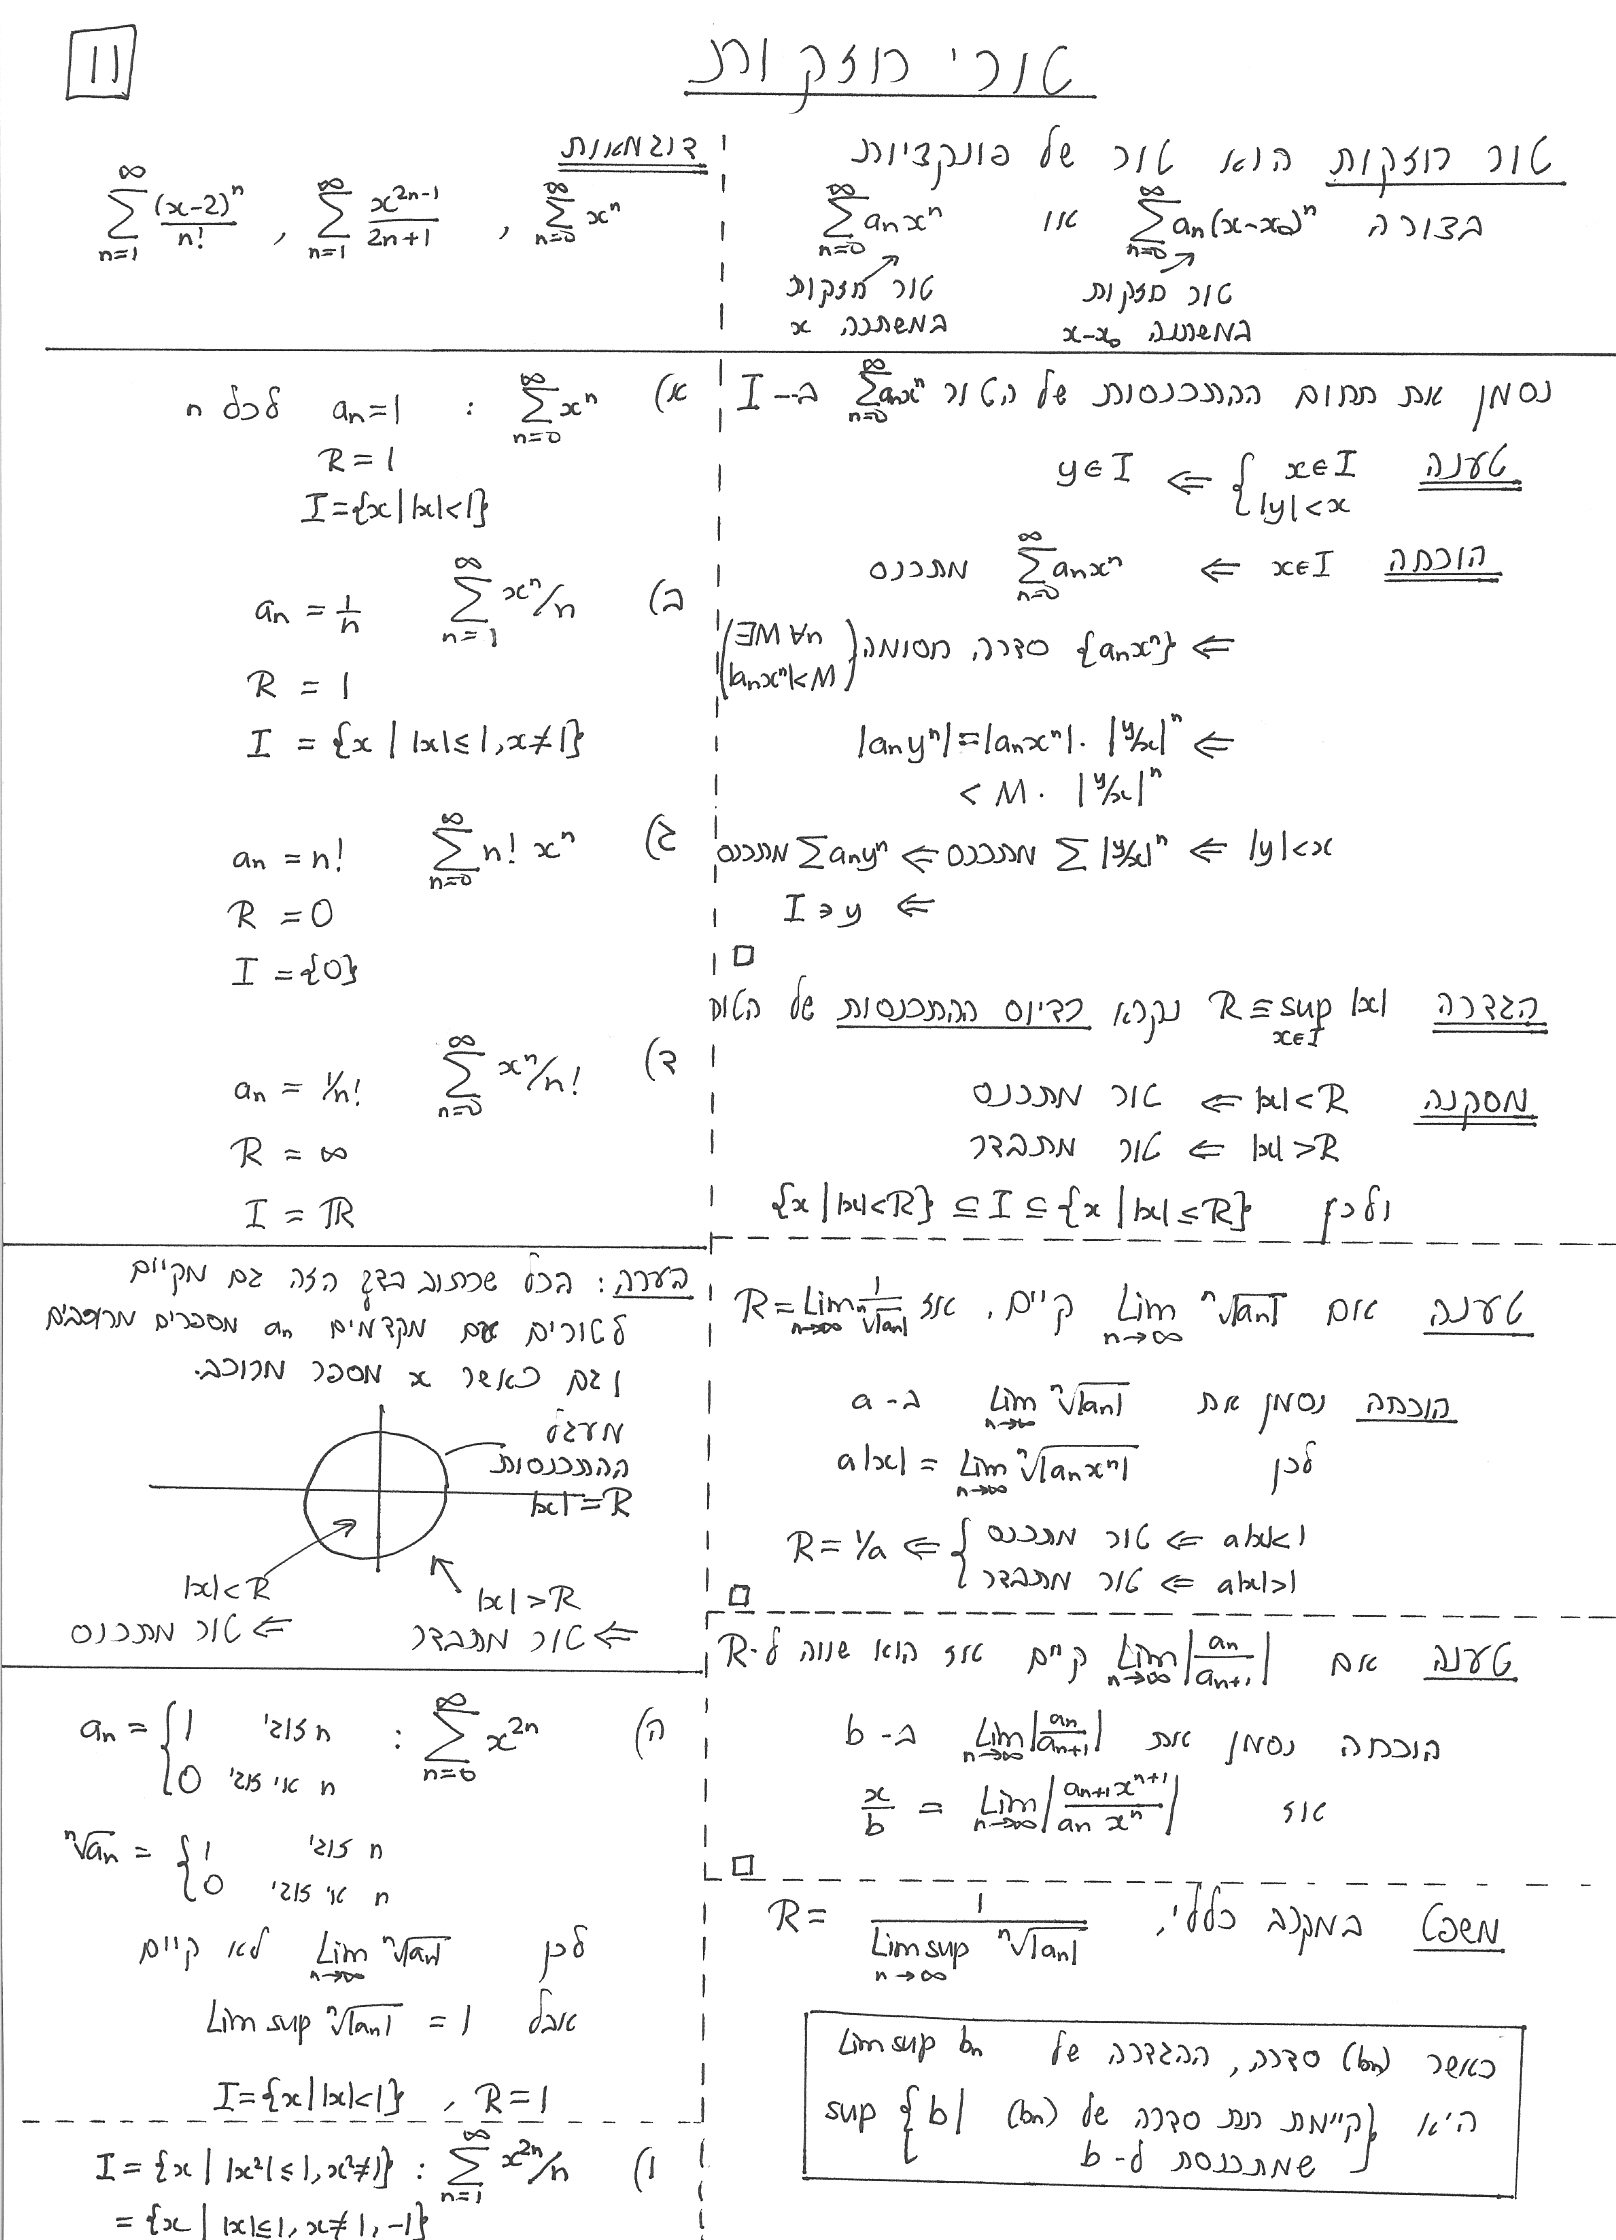 11
טורי חזקות
טור חזקות הוא טור של פונקציות
בצורה $\sum_{n=0}^{\infty} a_n(x-x_0)^n$ או $\sum_{n=0}^{\infty} a_n x^n$
טור חזקות במשתנה x-x₀
טור חזקות במשתנה x
דוגמאות
$\sum_{n=0}^{\infty} x^n$ , $\sum_{n=1}^{\infty} \frac{x^{2n-1}}{2n+1}$ , $\sum_{n=1}^{\infty} \frac{(x-2)^n}{n!}$
נסמן את תחום ההתכנסות של הטור $\sum_{n=0}^{\infty} a_n x^n$ ב-I
טענה $\begin{cases} x \in I \\ |y|<x \end{cases}$ ⇐ $y \in I$
הוכחה $x \in I$ ⇐ $\sum_{n=0}^{\infty} a_n x^n$ מתכנס
⇐ $\{a_n x^n\}$ סדרה חסומה (∃M ∀n |aₙxⁿ|<M)
⇐ $|a_n y^n| = |a_n x^n| \cdot |y/x|^n$
$< M \cdot |y/x|^n$
|y|<x ⇐ $\sum |y/x|^n$ מתכנס ⇐ $\sum a_n y^n$ מתכנס
⇐ I ∋ y
□
הגדרה $R \equiv \sup_{x \in I} |x|$ נקרא רדיוס ההתכנסות של הטור
מסקנה |x|<R ⇐ טור מתכנס
|x|>R ⇐ טור מתבדר
ולכן $\{x \mid |x|<R\} \subseteq I \subseteq \{x \mid |x| \leq R\}$
טענה אם $\lim_{n\to\infty} \sqrt[n]{|a_n|}$ קיים, אז $R = \lim_{n\to\infty} \frac{1}{\sqrt[n]{|a_n|}}$
הוכחה נסמן את $\lim_{n\to\infty} \sqrt[n]{|a_n|}$ ב-a
לכן $a|x| = \lim_{n\to\infty} \sqrt[n]{|a_n x^n|}$
a|x|<1 ⇐ טור מתכנס
a|x|>1 ⇐ טור מתבדר
⇐ R = 1/a
□
טענה אם $\lim_{n\to\infty} \left|\frac{a_n}{a_{n+1}}\right|$ קיים אז הוא שווה ל-R
הוכחה נסמן את $\lim_{n\to\infty} \left|\frac{a_n}{a_{n+1}}\right|$ ב-b
אז $\frac{x}{b} = \lim_{n\to\infty} \left|\frac{a_{n+1} x^{n+1}}{a_n x^n}\right|$
□
משפט במקרה כללי, $R = \frac{1}{\limsup_{n\to\infty} \sqrt[n]{|a_n|}}$
כאשר (bₙ) סדרה, ההגדרה של Lim sup bₙ
היא sup {b | קיימת תת סדרה של (bₙ)
שמתכנסת ל-b}
א) $\sum_{n=0}^{\infty} x^n$ : $a_n = 1$ לכל n
R = 1
I = {x | |x|<1}
ב) $\sum_{n=1}^{\infty} x^n/n$ $a_n = \frac{1}{n}$
R = 1
I = {x | |x|≤1, x≠1}
ג) $\sum_{n=0}^{\infty} n! \, x^n$ $a_n = n!$
R = 0
I = {0}
ד) $\sum_{n=0}^{\infty} x^n/n!$ $a_n = 1/n!$
R = ∞
I = ℝ
הערה: הכל שכתוב בדף הזה גם מקיים
לטורים עם מקדמים aₙ מספרים מרוכבים
וגם כאשר x מספר מרוכב.
מעגל
ההתכנסות
|x|=R
|x|<R
⇐ טור מתכנס
|x|>R
⇐ טור מתבדר
ה) $\sum_{n=0}^{\infty} x^{2n}$ : $a_n = \begin{cases} 1 & \text{n זוגי} \\ 0 & \text{n אי זוגי} \end{cases}$
$\sqrt[n]{a_n} = \begin{cases} 1 & \text{n זוגי} \\ 0 & \text{n אי זוגי} \end{cases}$
לכן $\lim_{n\to\infty} \sqrt[n]{|a_n|}$ לא קיים
אבל $\limsup \sqrt[n]{|a_n|} = 1$
I = {x | |x|<1} , R = 1
ו) $\sum_{n=1}^{\infty} x^{2n}/n$ : I = {x | |x²|≤1, x²≠1}
= {x | |x|≤1, x≠1,-1}